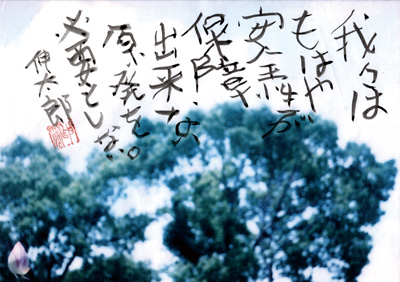 我々は
もはや
安全性が
保障
出来ない
原発を
必要としない。
伸太郎